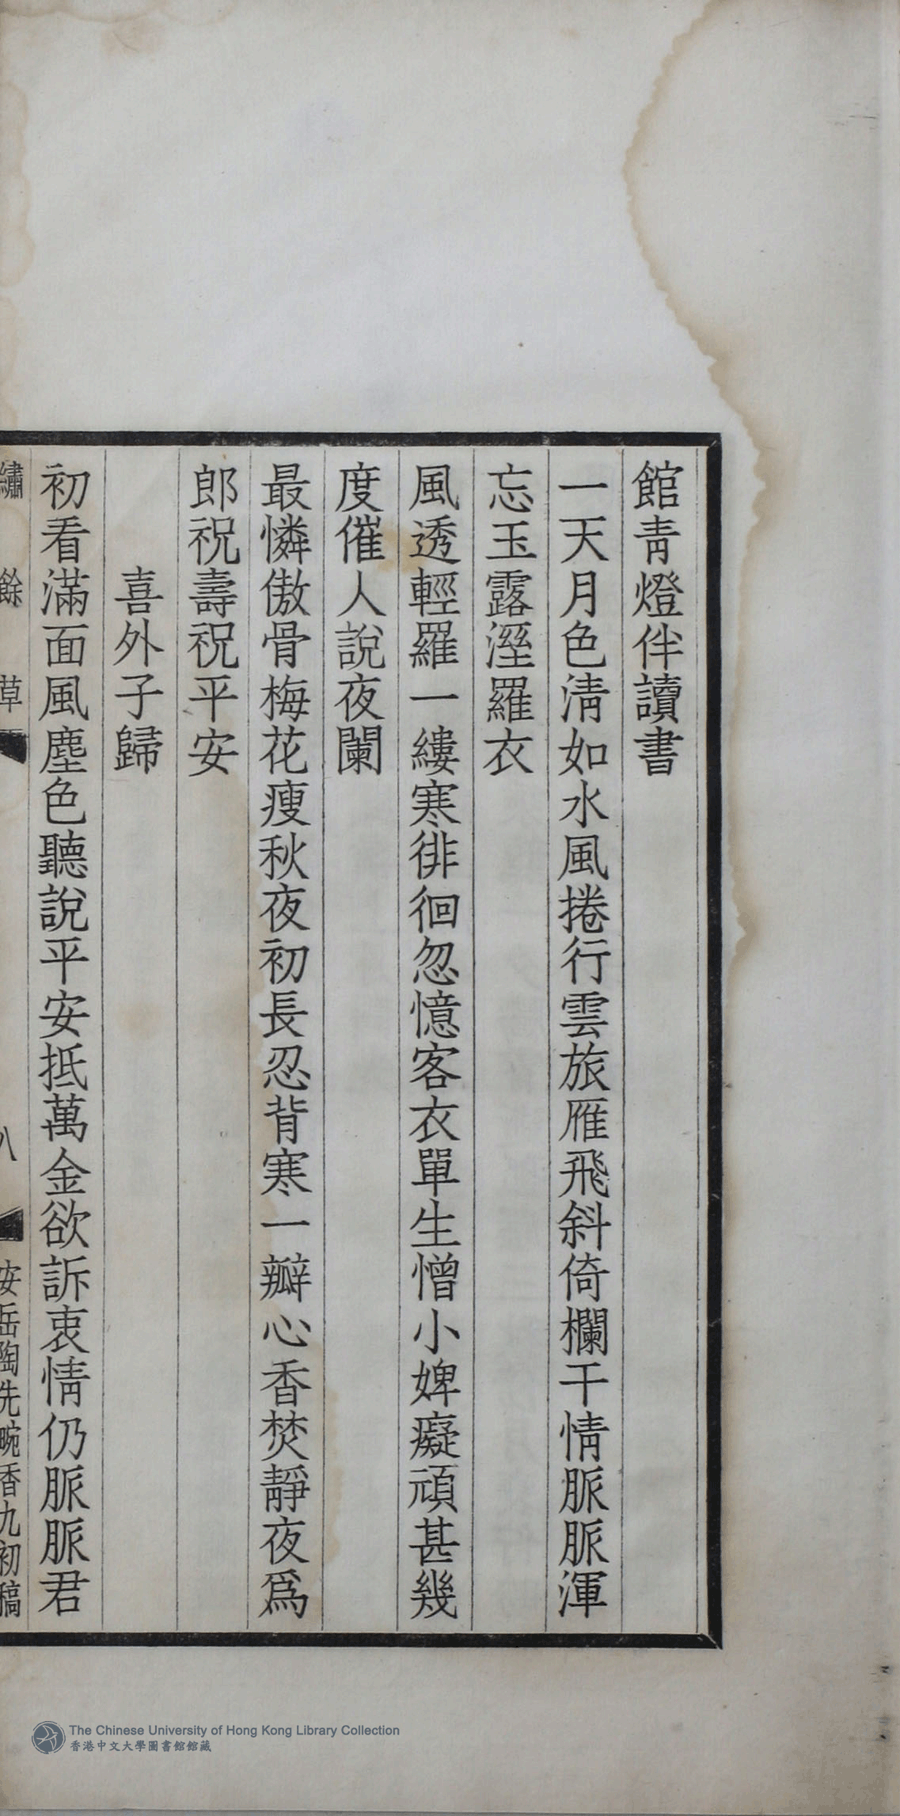 館青燈伴讀書
一天月色淸如水風捲行雲旅雁飛斜倚欄干情脈脈渾
忘玉露溼羅衣
風透輕羅一縷寒徘徊忽憶客衣單生憎小婢癡頑甚幾
度催人說夜闌
最憐傲骨梅花瘦秋夜初長忍背寒一瓣心香焚靜夜爲
郎祝壽祝平安
喜外子歸
初看滿面風塵色聽說平安抵萬金欲訴衷情仍脈脈君
繡餘草
八
安岳陶先畹香九初稿
The Chinese University of Hong Kong Library Collection
香港中文大學圖書館館藏